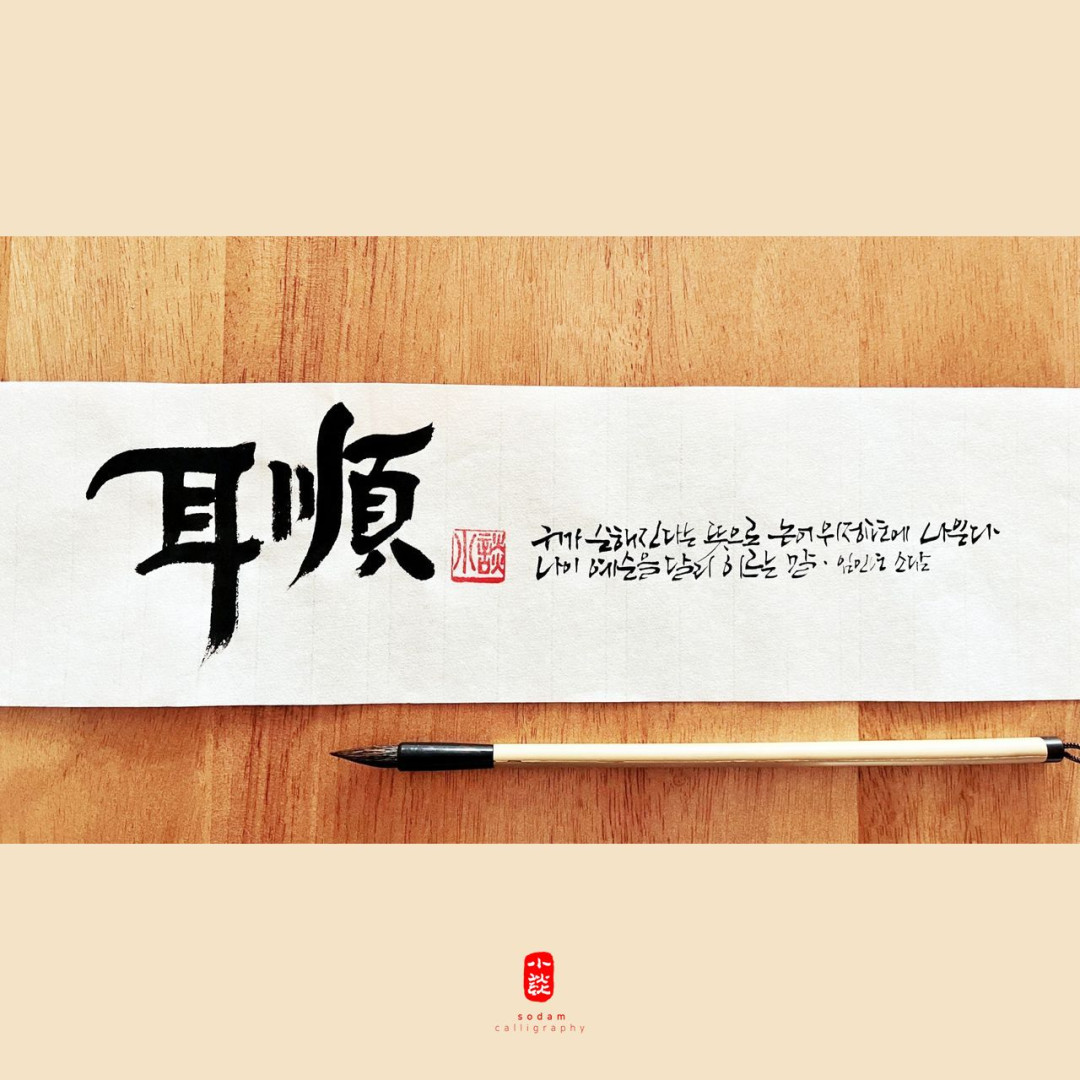 耳順
小談
귀가 순해진다는 뜻으로 논어 위정편에 나온다.
나이 예순을 달리 이르는 말. 임인년 소담
小
談
sodam
calligraphy